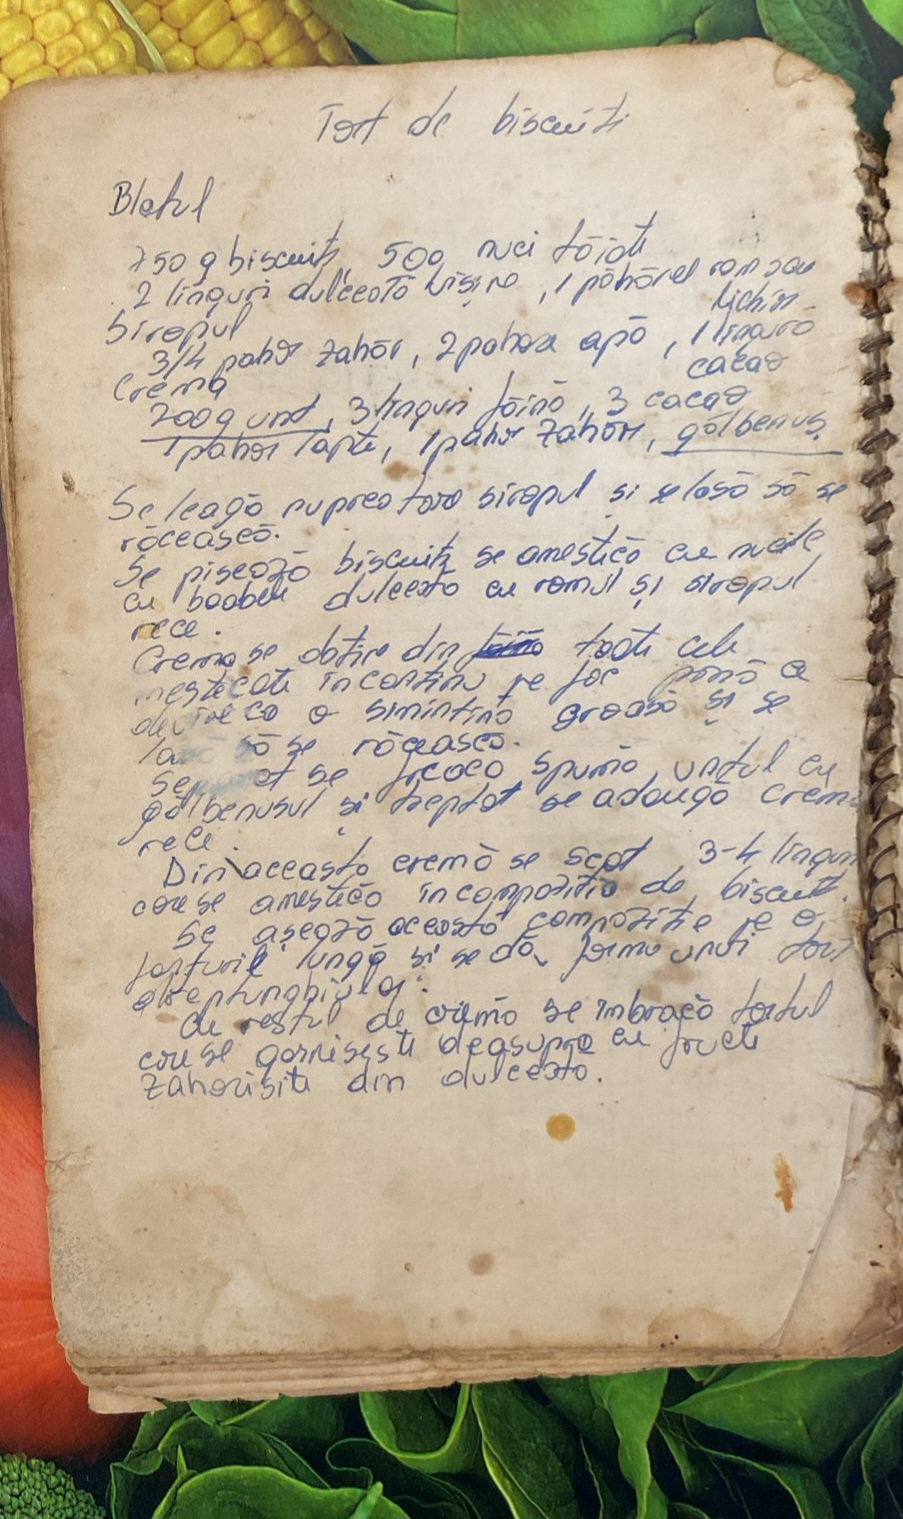 Tort de biscuiți
Blatul
750 g biscuiți 500 nuci tăiate
2 linguri dulceată vișine, 1 păhărel rom sau
lichior
Siropul
3/4 pahar zahăr, 2 pahare apă, 1 lingură
cacao
Crema
200 g unt, 3 linguri făină, 3 cacao
1 pahar lapte, 1 pahar zahăr, gălbenuș
Se leagă nu prea tare siropul și se lasă să se
răcească.
Se pisează biscuiți se amestică cu nucile
cu boabele dulceată cu romul și siropul
rece.
Crema se obține din toate cele
mestecate încontinu pe foc pînă ce
devine ca o smîntînă groasă și se
să se răcească.
se freacă spumă untul cu
gălbenusul și treptat se adaugă crema
rece.
Din aceasta cremă se scot 3-4 linguri
care se amestică în compoziția de biscuiți.
Se așează aceasta compoziție pe o
farfurie lungă și se dă forma unui tort
dreptunghiular.
Cu restul de cremă se îmbracă tortul
care se garnisește deasupra cu fructe
zaharisite din dulceată.